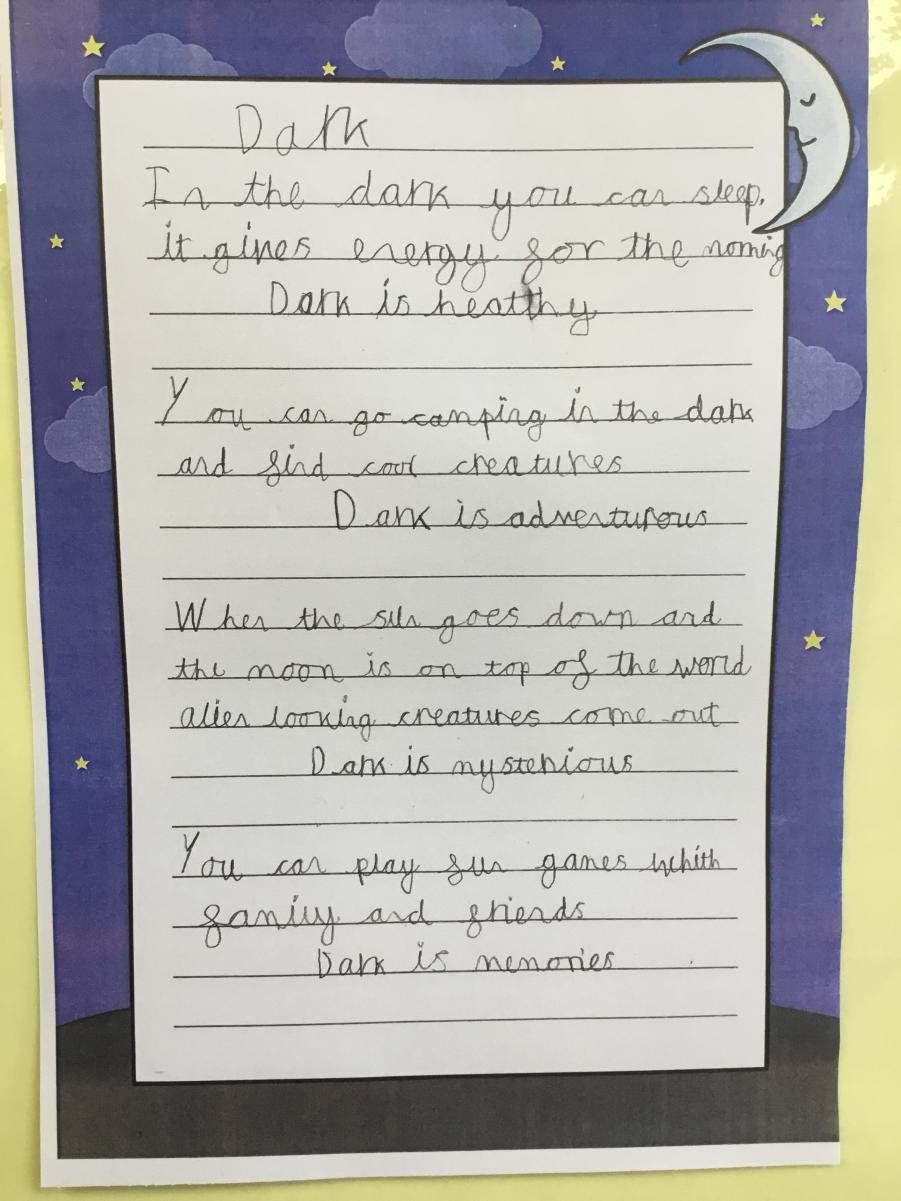 Dark
In the dark you can sleep.
it gives energy for the morning
Dark is healthy
You can go camping in the dark
and find cool creatures
Dark is adventurous
When the sun goes down and
the moon is on top of the world
alien looking creatures come out
Dark is mysterious
You can play fun games whith
family and friends
Dark is memories